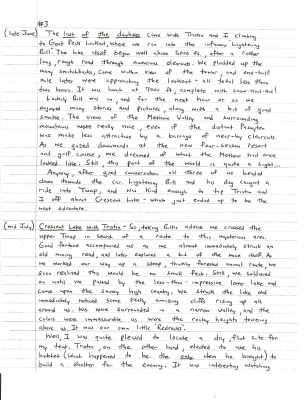 #3
(late June) The last of the daytrips came with Tristin and I climbing
to Goat Peak Lookout, where we ran into the infamous Lightning
Bill. The hike itself began well above 5000 ft, after a rather
long, rough road through numerous clearcuts. We plodded up the
many switchbacks, came within view of the tower, and one-half
mile later were approaching the lookout - all total less than
two hours. It was lunch at 7000 ft, complete with snow-Kool-Aid!
Luckily Bill was in, and for the next hour or so we
enjoyed many stories and pictures, along with a bit of good
smoke. The views of the Methow Valley and surrounding
mountains were really nice, even if the distant Pasayten
was made less attractive by a barrage of near-by clearcuts.
As we gazed downwards at the new four-season resort
and golf course, we dreamed of what the Methow had once
looked like. Still this part of the world is quite a sight...
Anyway, after good conversation all three of us headed
down towards the car. Lightning Bill and his dog caught a
ride into Twisp, and was kind enough to tip Tristin and
I off about Crescent Lake - which just ended up to be the
next adventure.
(mid July) Crescent Lake with Tristin - So, taking Bill's advice we crossed the
upper Twisp in search of a route to this mysterious area.
Good fortune accompanied us as we almost immediately struck an
old mining road, and later explored a bit of the mine itself. As
we worked our way up a steep, thickly forested animal route, we
soon realized this would be no small feat. Still, we soldiered
on until we passed by the less-than-impressive lower lake and
came upon the snowy high country. We struck the lake and
immediately noticed some really amazing cliffs rising up all
around us. We were surrounded in a narrow valley, and the
colors were immeasurable as were the rocky heights towering
above us. It was our own little "Redrocks".
Well, I was quite pleased to locate a dry, flat site for
my tent. Tristin, on the other hand, elected to use his
hatchet (which happened to be the only item he brought) to
build a shelter for the evening. It was interesting watching